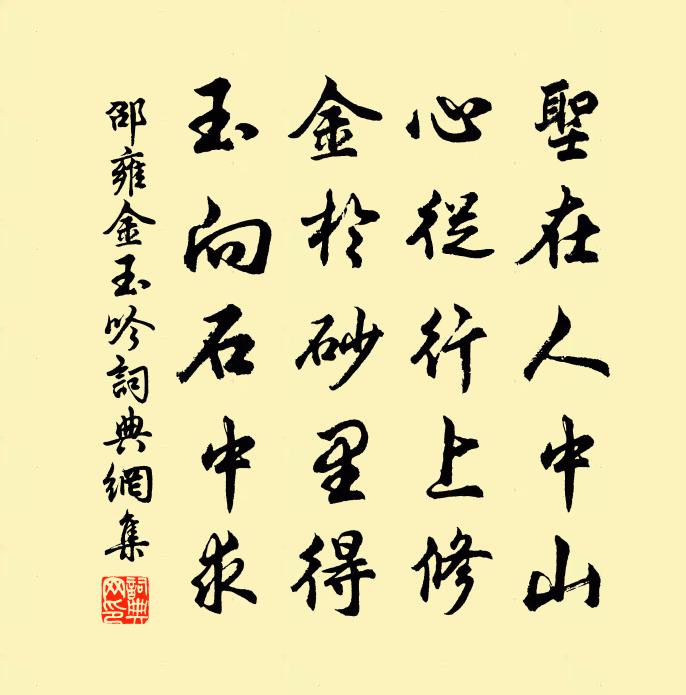 聖在人中山
心從行上修
金於砂里得
玉向石中求
邵雍金玉吟詞典網集
詞典网印